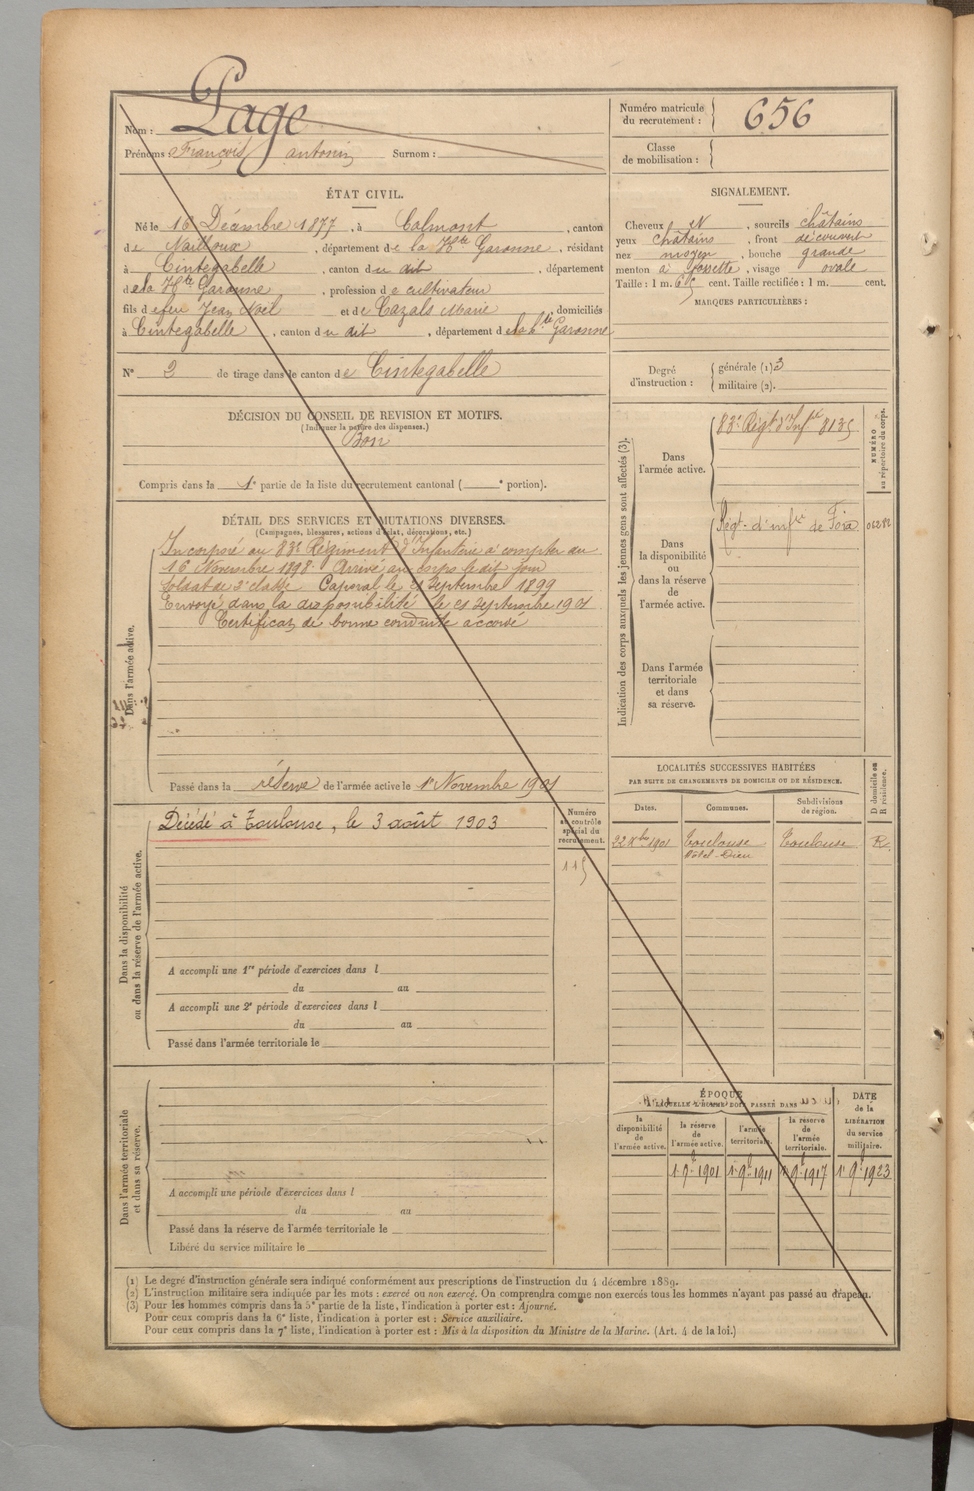 Nom : Page
Prénoms : François antonin Surnom :
Numéro matricule du recrutement : 656
Classe de mobilisation :
ÉTAT CIVIL.
Né le 16 Décembre 1877, à Calmont, canton
de Nailloux, département de la Hte Garonne, résidant
à Cintegabelle, canton du dit, département
de la Hte Garonne, profession de cultivateur
fils de feu Jean Noël et de Cazals Marie, domiciliés
à Cintegabelle, canton du dit, département de la hte Garonne
N° 2 de tirage dans le canton de Cintegabelle
SIGNALEMENT.
Cheveux N, sourcils châtains
yeux châtains, front découvert
nez moyen, bouche grande
menton à fossette, visage ovale
Taille : 1 m. cent. Taille rectifiée : 1 m. cent.
MARQUES PARTICULIÈRES :
Degré d'instruction : générale (1) 3
militaire (2).
DÉCISION DU CONSEIL DE REVISION ET MOTIFS.
(Indiquer la nature des dispenses.)
Bon
Compris dans la 1e partie de la liste du recrutement cantonal ( e portion).
DÉTAIL DES SERVICES ET MUTATIONS DIVERSES.
(Campagnes, blessures, actions d'éclat, décorations, etc.)
Dans l'armée active.
Incorporé au 83e Régiment d'Infanterie à compter du
16 Novembre 1898. Arrivé au corps le dit jour
soldat de 2e classe Caporal le 21 Septembre 1899
Envoyé dans la disponibilité le 21 septembre 1901
Certificat de bonne conduite accordé
Passé dans la réserve de l'armée active le 1er Novembre 1901
Indication des corps auxquels les jeunes gens sont affectés (3).
NUMÉRO au répertoire du corps.
Dans l'armée active.
83e Régt d'Infie 8135
Dans la disponibilité ou dans la réserve de l'armée active.
Régt d'infie de Foix
Dans l'armée territoriale et dans sa réserve.
LOCALITÉS SUCCESSIVES HABITÉES
PAR SUITE DE CHANGEMENTS DE DOMICILE OU DE RÉSIDENCE.
D domicile ou R résidence.
Dates. Communes. Subdivisions de région.
22 Xbre 1901 Toulouse Toulouse R.
Hôtel-Dieu
Dans la disponibilité ou dans la réserve de l'armée active.
Décédé à Toulouse, le 3 août 1903
Numéro au contrôle spécial du recrutement.
115
A accompli une 1re période d'exercices dans l
du au
A accompli une 2e période d'exercices dans l
du au
Passé dans l'armée territoriale le
Dans l'armée territoriale et dans sa réserve.
A accompli une période d'exercices dans l
du au
Passé dans la réserve de l'armée territoriale le
Libéré du service militaire le
ÉPOQUE
À LAQUELLE L'HOMME DOIT PASSER DANS
la disponibilité de l'armée active.
la réserve de l'armée active.
l'armée territoriale.
la réserve de l'armée territoriale.
DATE de la LIBÉRATION du service militaire.
1r 9e 1901 1r 9e 1911 1r 9e 1917 1r 9e 1923
(1) Le degré d'instruction générale sera indiqué conformément aux prescriptions de l'instruction du 4 décembre 1889.
(2) L'instruction militaire sera indiquée par les mots : exercé ou non exercé. On comprendra comme non exercés tous les hommes n'ayant pas passé au drapeau.
(3) Pour les hommes compris dans la 5e partie de la liste, l'indication à porter est : Ajourné.
Pour ceux compris dans la 6e liste, l'indication à porter est : Service auxiliaire.
Pour ceux compris dans la 7e liste, l'indication à porter est : Mis à la disposition du Ministre de la Marine. (Art. 4 de la loi.)